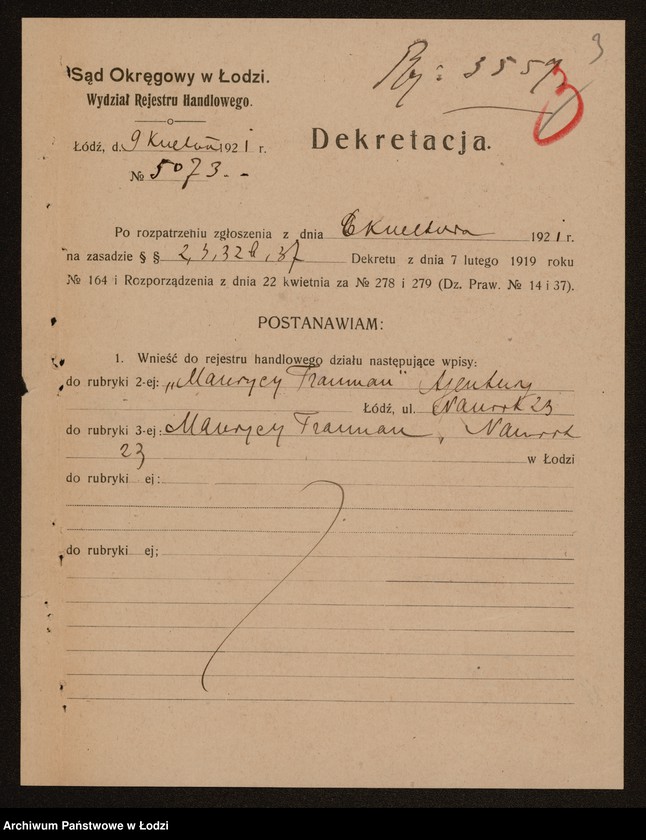 3
Rej: 3557
3
Sąd Okręgowy w Łodzi.
Wydział Rejestru Handlowego.
Łódź, d. 9 Kwietnia 1921 r.
№ 5073.-
Dekretacja.
Po rozpatrzeniu zgłoszenia z dnia 6 Kwietnia 1921 r.
na zasadzie § § 2, 3, 32, 37 Dekretu z dnia 7 lutego 1919 roku
№ 164 i Rozporządzenia z dnia 22 kwietnia za № 278 i 279 (Dz. Praw. № 14 i 37).
POSTANAWIAM:
1. Wnieść do rejestru handlowego działu następujące wpisy:
do rubryki 2-ej: „Maurycy Frauman" Ajentury
Łódź, ul. Nawrot 23
do rubryki 3-ej: Maurycy Frauman, Nawrot
23 w Łodzi
do rubryki ej:
do rubryki ej;
Archiwum Państwowe w Łodzi